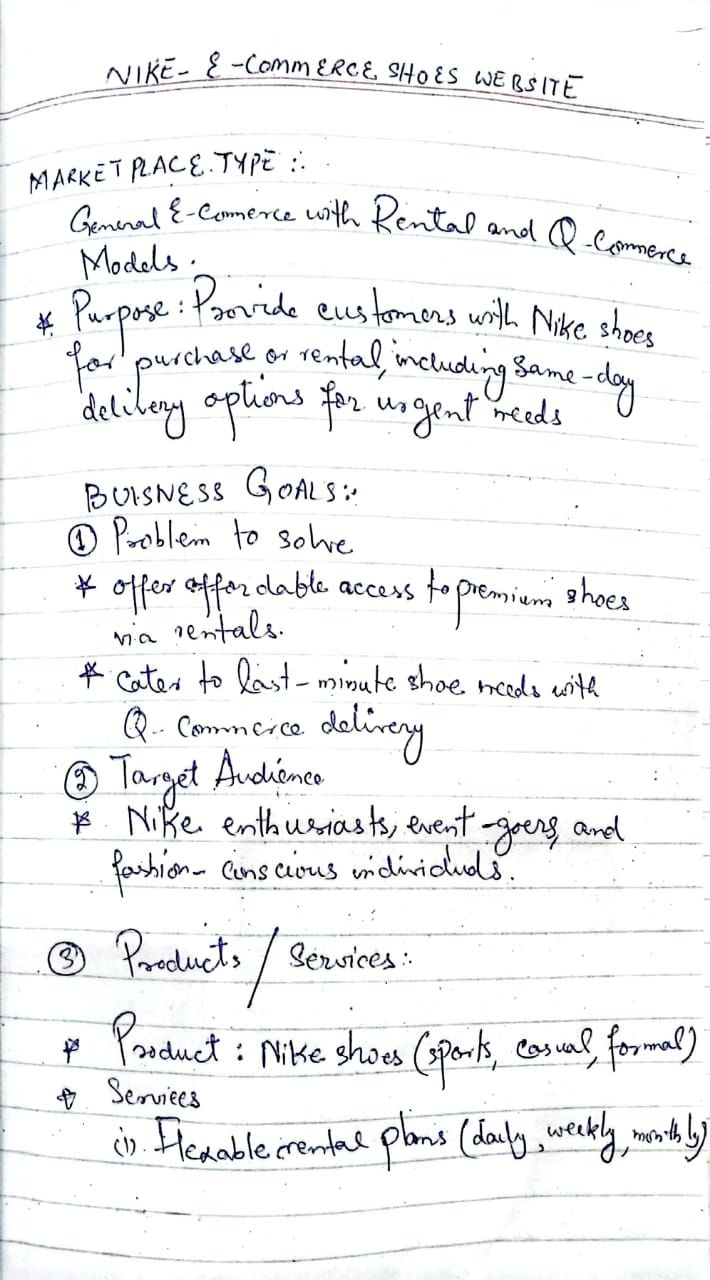 NIKE - E-COMMERCE SHOES WEBSITE
MARKET PLACE. TYPE :.
General E-Comerce with Rental and Q-Commerce
Models.
* Purpose : Provide customers with Nike shoes
for purchase or rental, including Same-day
delivery options for urgent needs
BUISNESS GOALS :.
① Problem to solve
* offer affordable access to premium shoes
via rentals.
* Cater to last-minute shoe needs with
Q. Commerce delivery
② Target Audience
* Nike enthusiasts, event-goers, and
fashion-conscious individuls.
③ Products / Services :.
* Product : Nike shoes (sports, casual, formal)
* Services
(i). Flexable rental plans (daily, weekly, monthly)